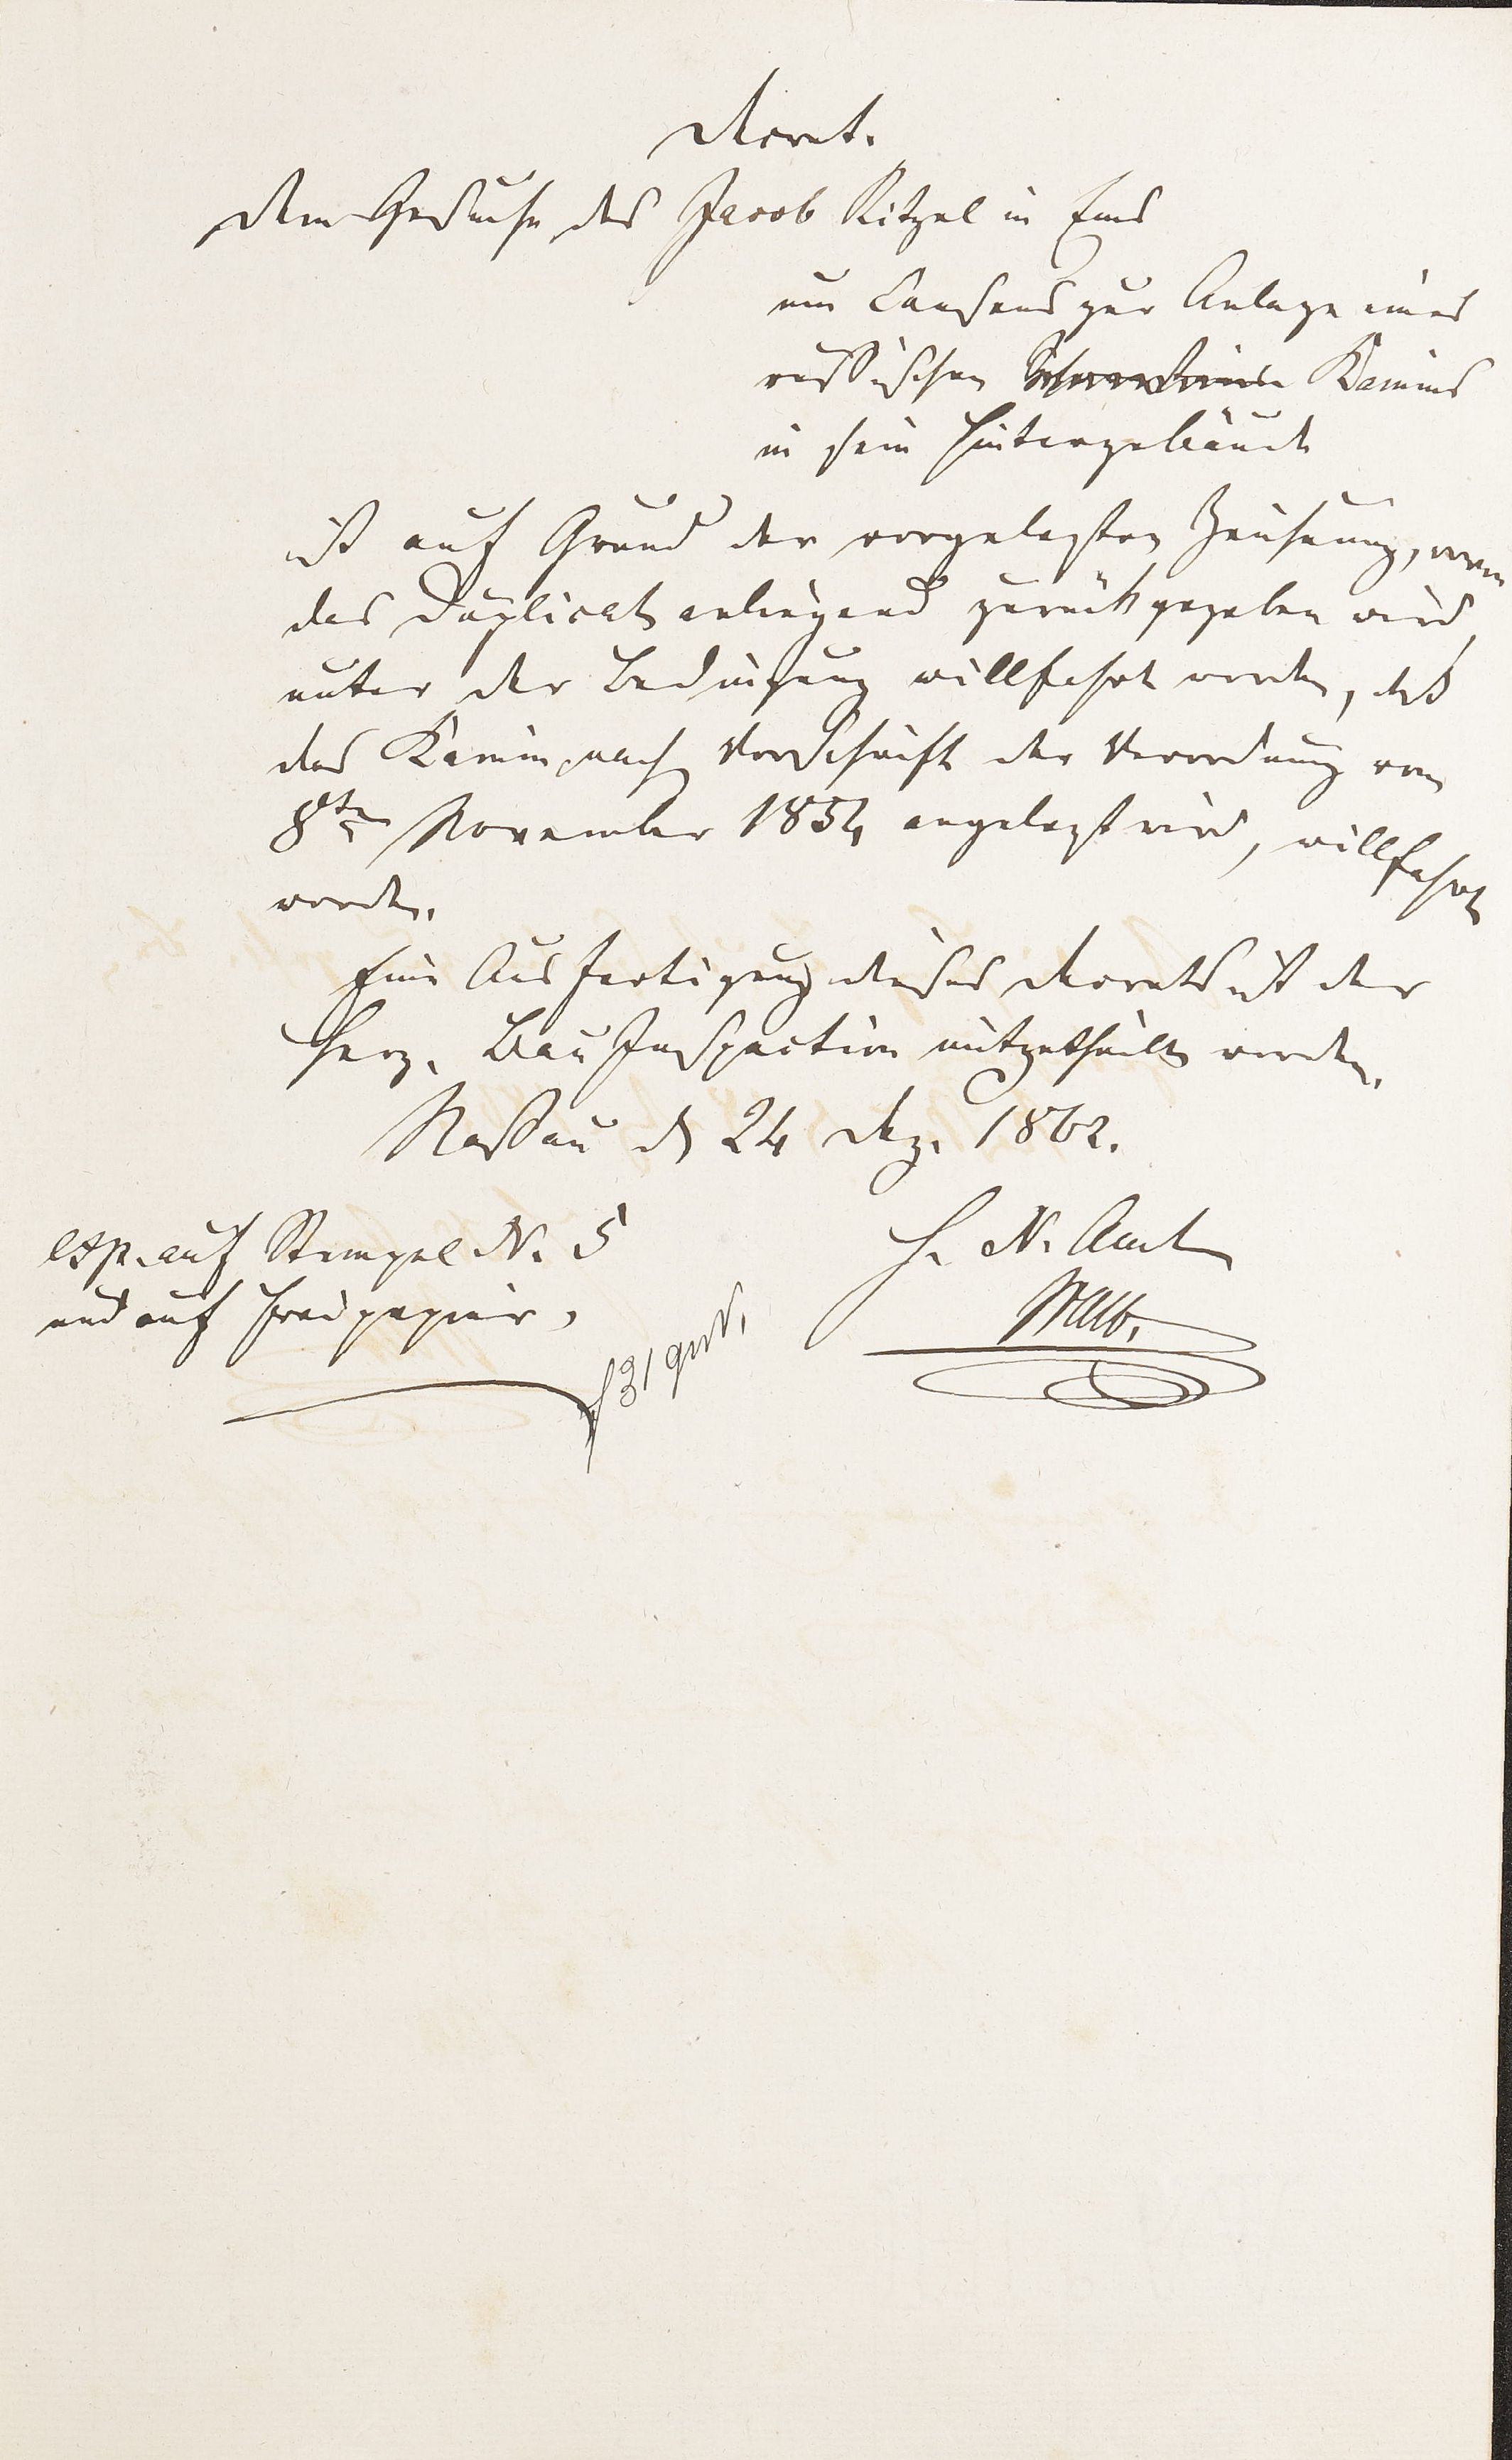 Decret.
Dem Gesuche des Jacob Ritzel in Ems
um Consens zur Anlage eines
russischen Kamins
in sein Hintergebäude
ist auf Grund der vorgelegten Zeichnung, wovon
das Duplicat anliegend zurückgegeben wird,
unter der Bedingung willfahrt worden, daß
das Kamin nach Vorschrift der Verordnung vom
8ten November 1854 angelegt wird, willfahrt
worden.
Eine Ausfertigung dieses Decrets ist der
Herz. Bau Inspection mitgetheilt worden.
Nassau d 24 Dez. 1862.
exp. auf Stempel N. 5
und auf Freipapier.
H. N. Amt